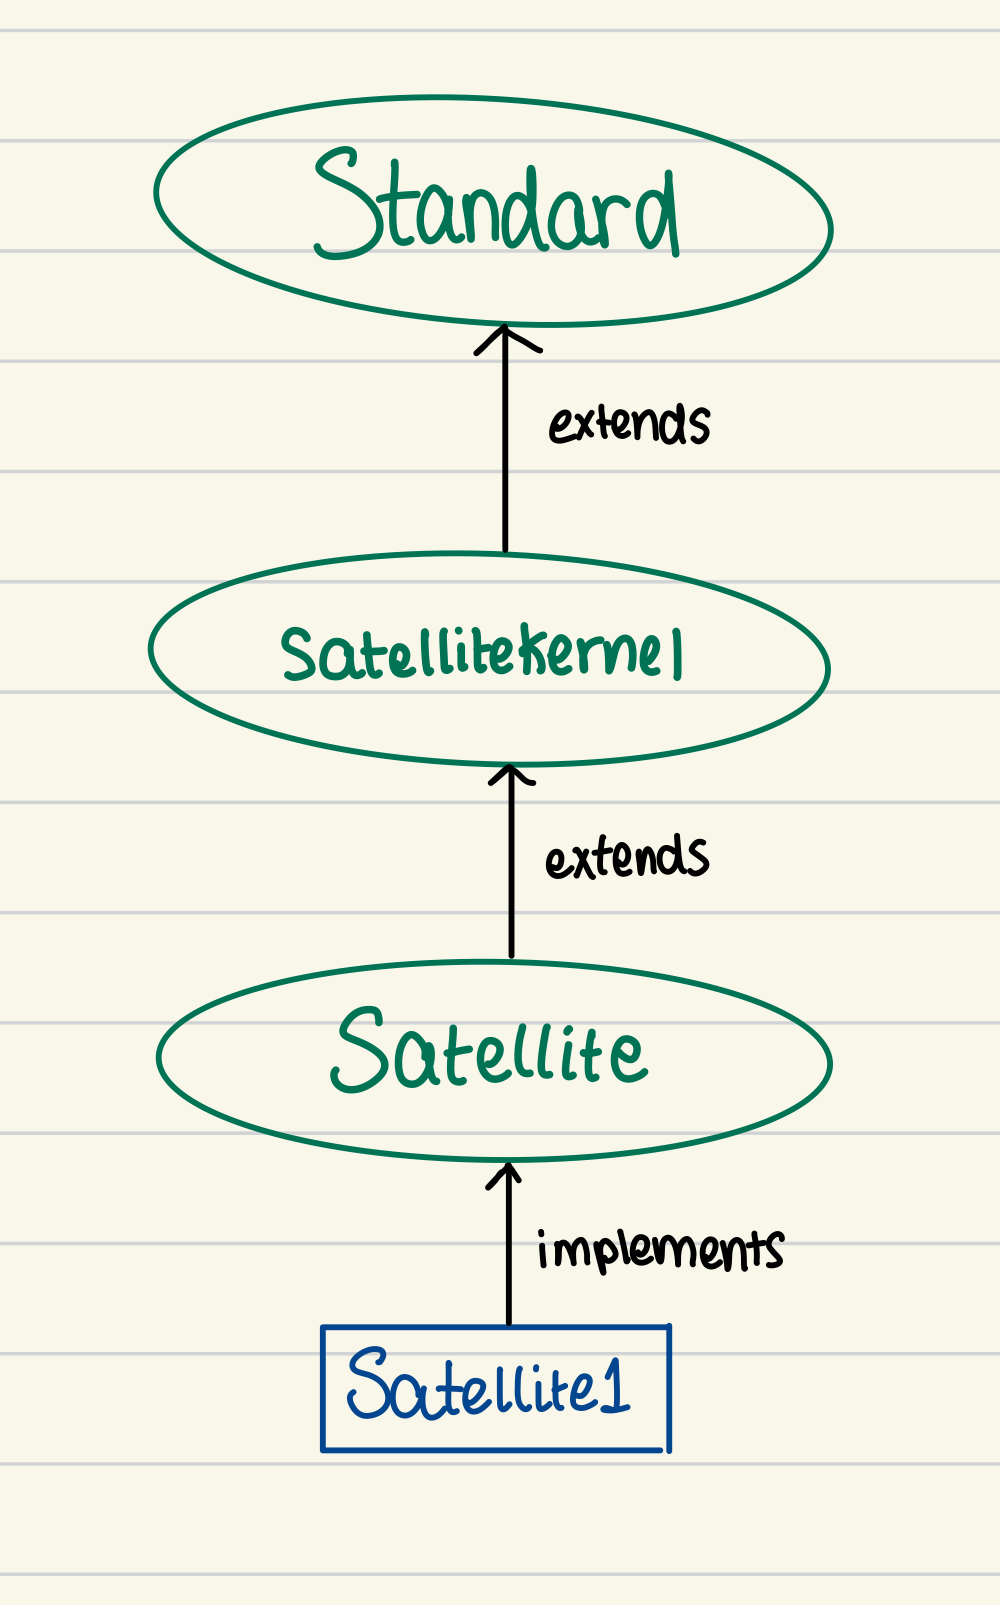 Standard
extends
Satellitekernel
extends
Satellite
implements
Satellite1